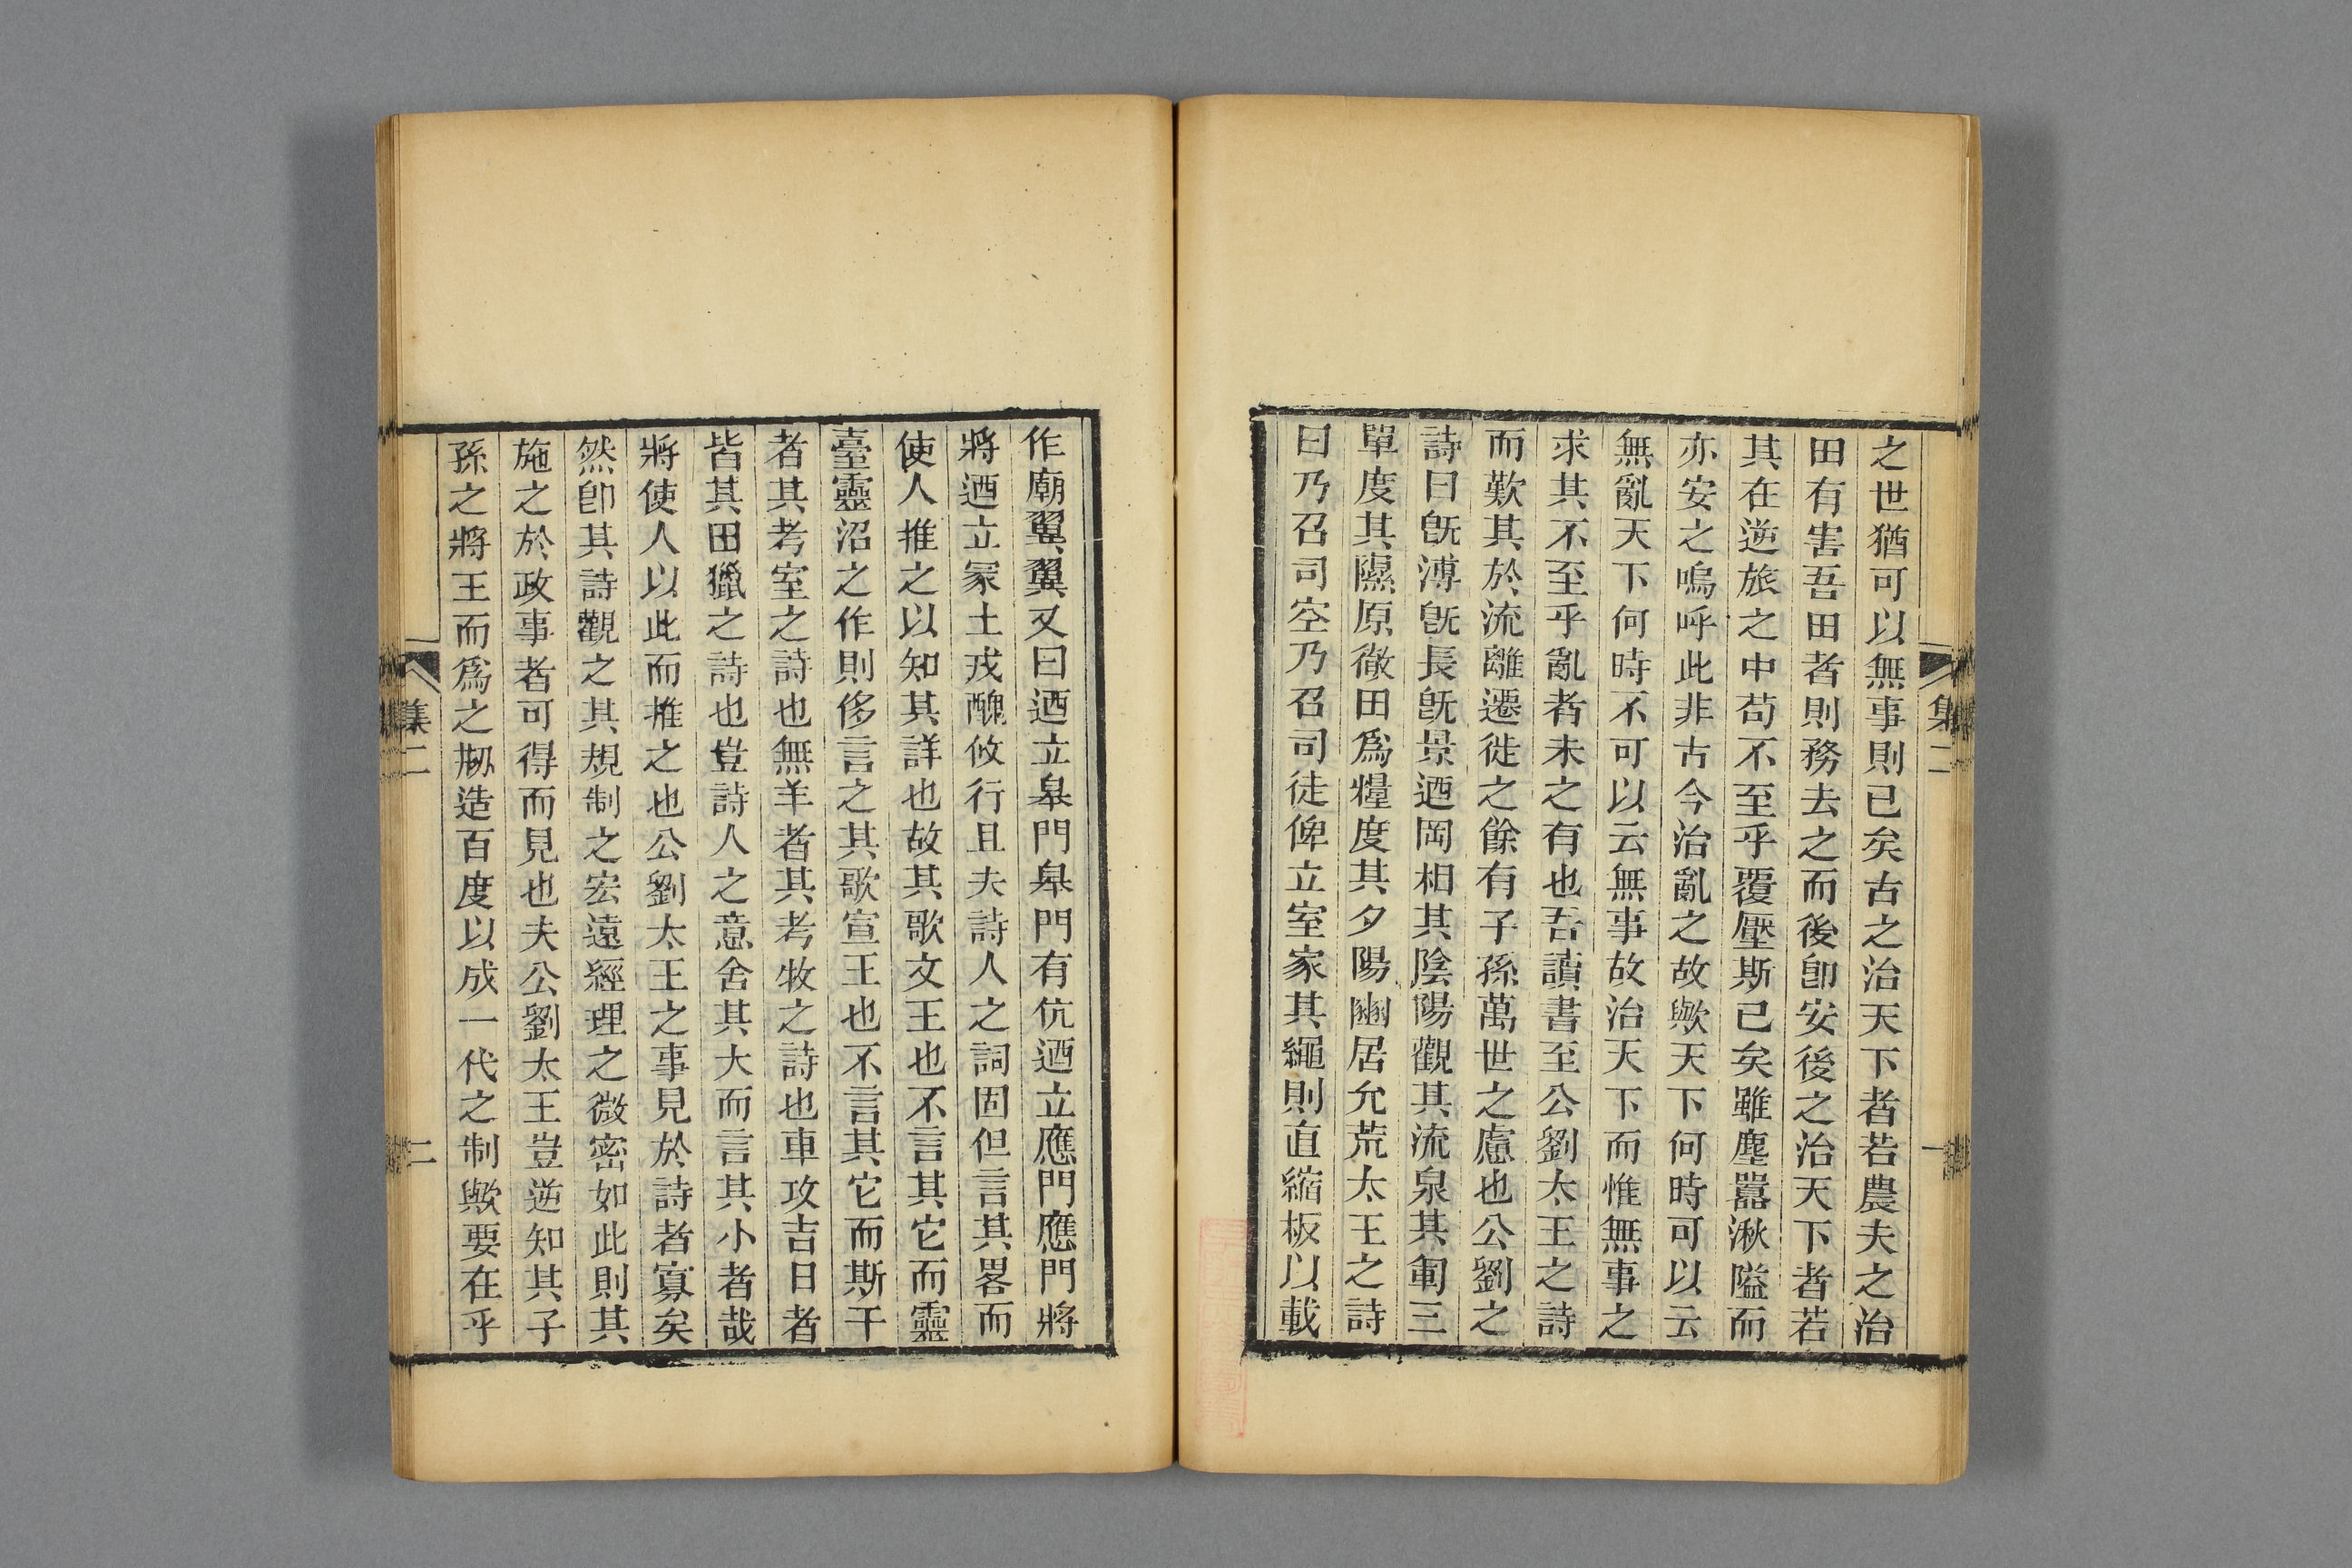 之世猶可以無事則已矣古之治天下者若農夫之治
田有害吾田者則務去之而後卽安後之治天下者若
其在逆旅之中苟不至乎覆壓斯已矣雖塵嚣湫隘而
亦安之嗚呼此非古今治亂之故歟天下何時可以云
無亂天下何時不可以云無事故治天下而惟無事之
求其不至乎亂者未之有也吾讀書至公劉太王之詩
而歎其於流離遷徙之餘有子孫萬世之慮也公劉之
詩曰旣溥旣長旣景迺岡相其陰陽觀其流泉其軍三
單度其隰原徹田爲糧度其夕陽豳居允荒太王之詩
曰乃召司空乃召司徒俾立室家其繩則直縮板以載
集二
一
作廟翼翼又曰迺立皋門皋門有伉迺立應門應門將
將迺立冢土戎醜攸行且夫詩人之詞固但言其畧而
使人推之以知其詳也故其歌文王也不言其它而靈
臺靈沼之作則侈言之其歌宣王也不言其它而斯干
者其考室之詩也無羊者其考牧之詩也車攻吉日者
皆其田獵之詩也豈詩人之意舍其大而言其小者哉
將使人以此而推之也公劉太王之事見於詩者寡矣
然卽其詩觀之其規制之宏遠經理之微密如此則其
施之於政事者可得而見也夫公劉太王豈逆知其子
孫之將王而爲之剏造百度以成一代之制歟要在乎
集二
二